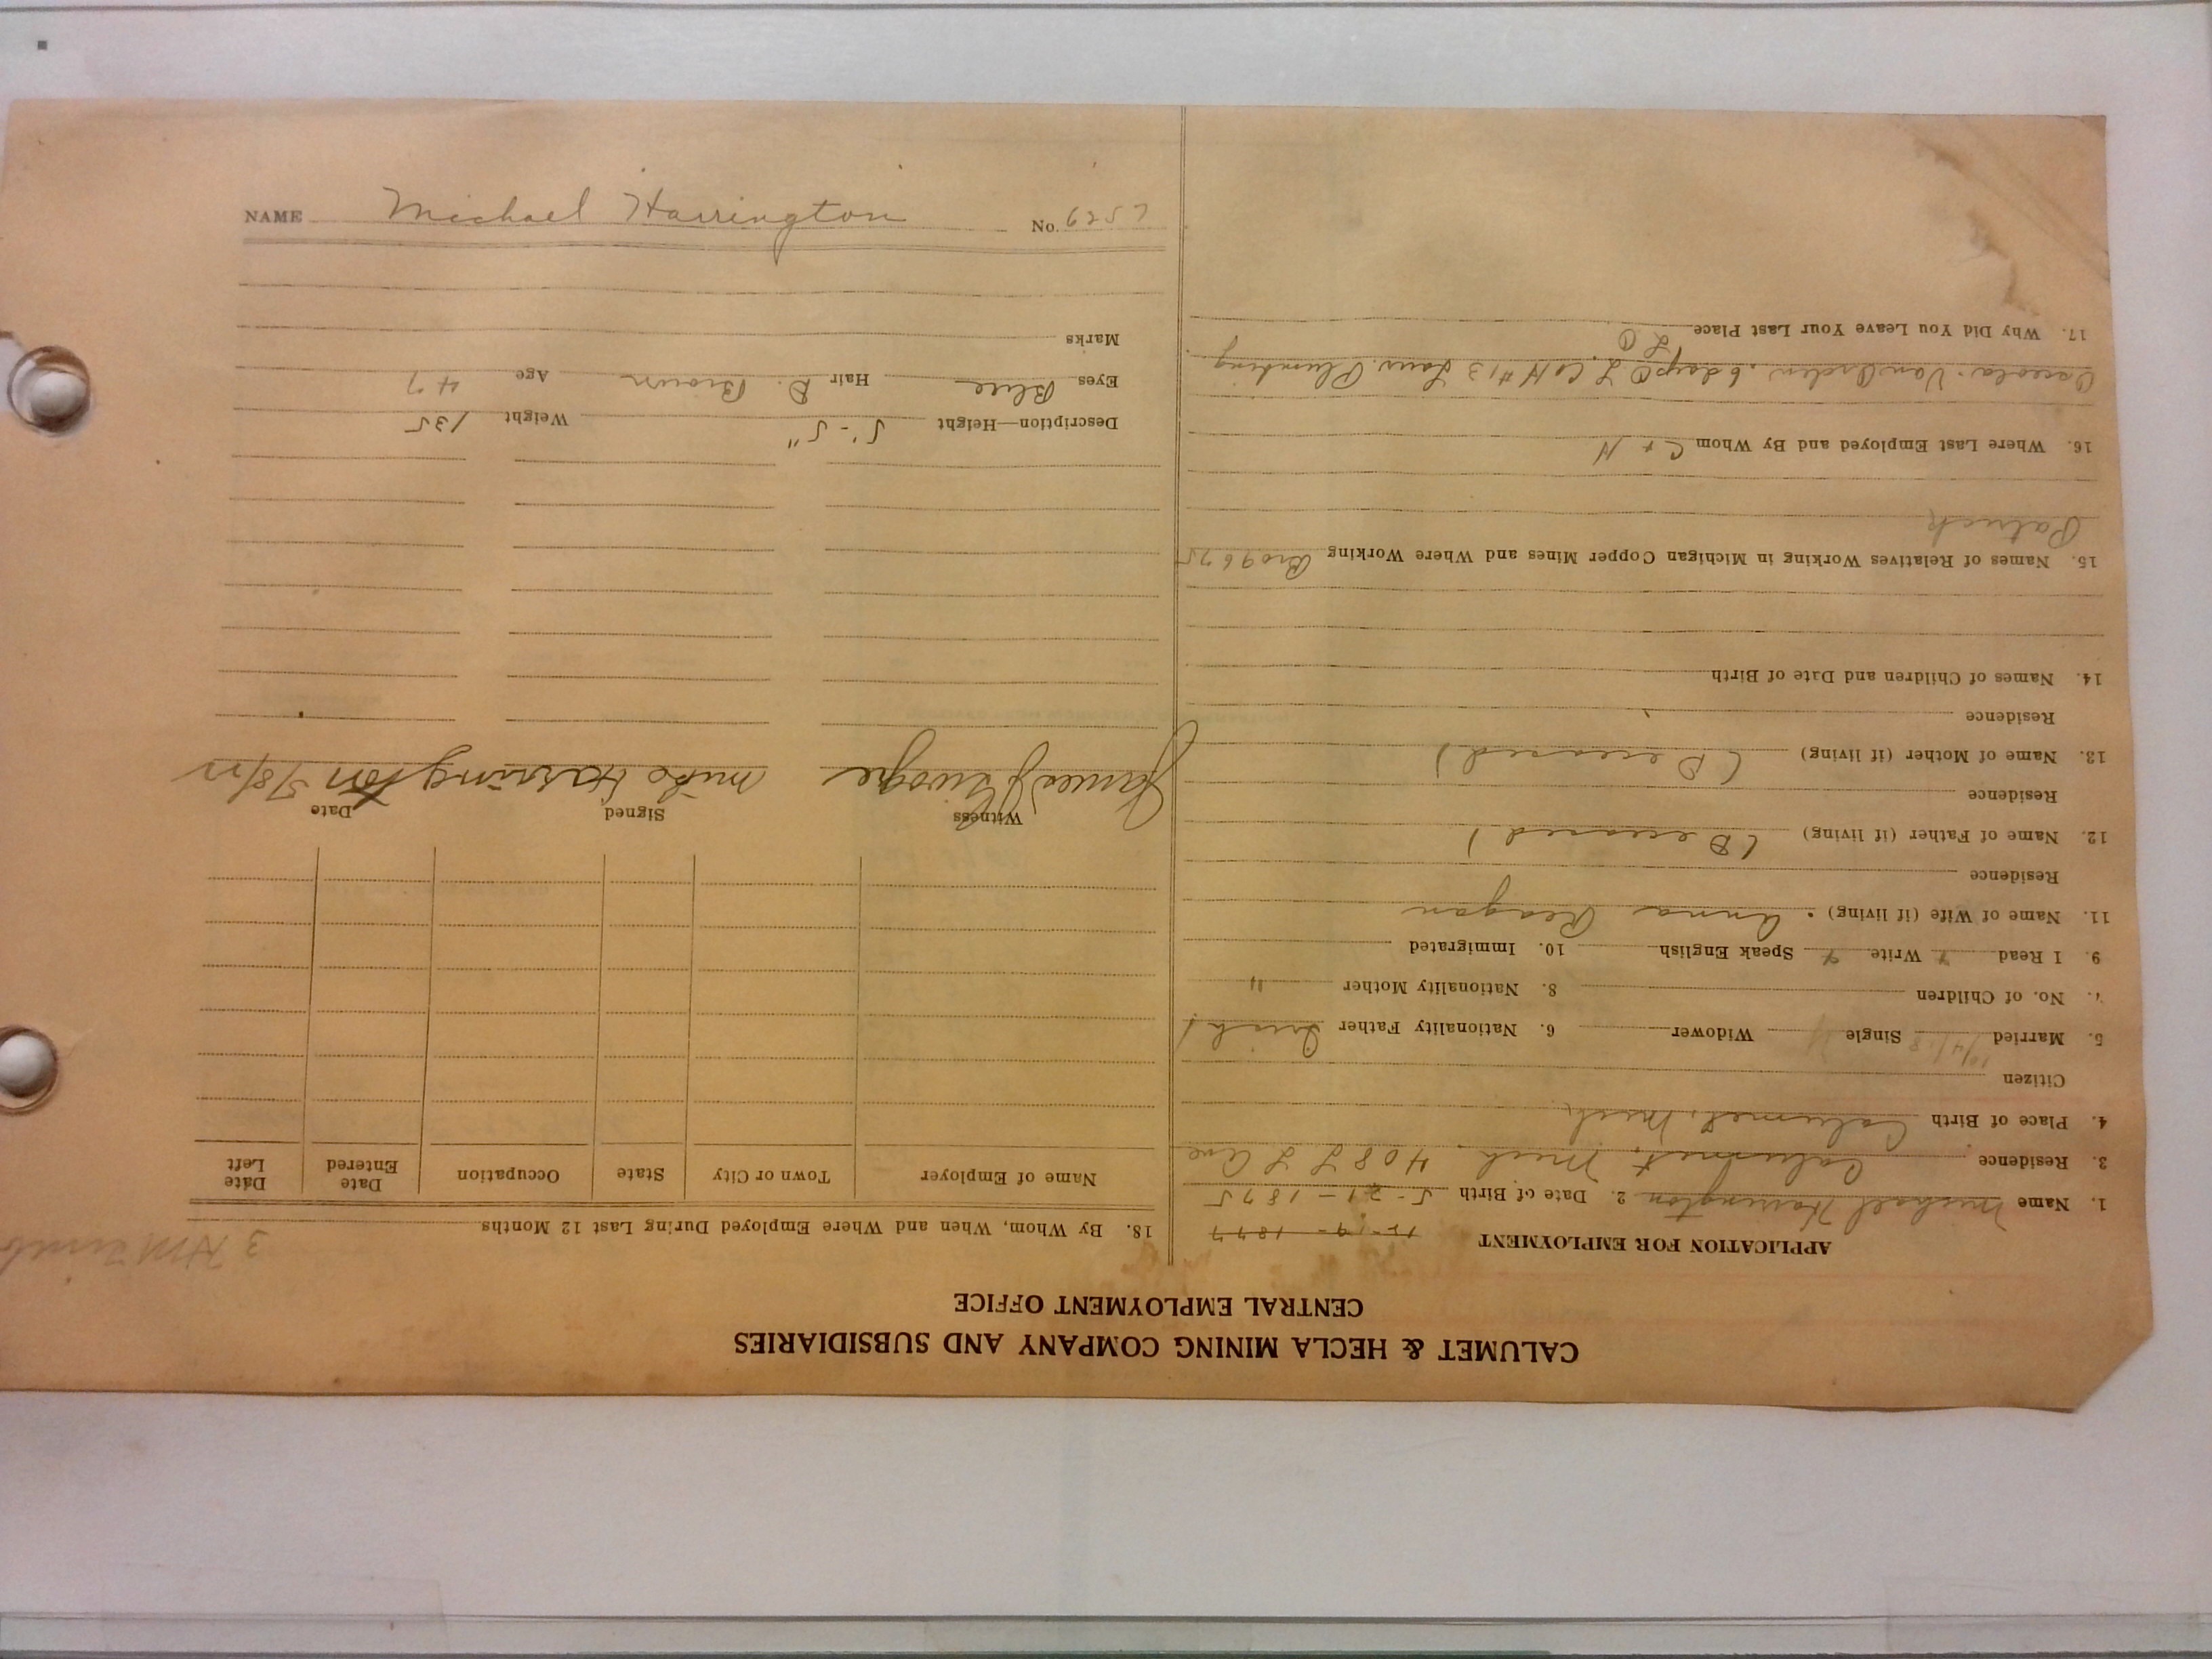 CALUMET & HECLA MINING COMPANY AND SUBSIDIARIES
CENTRAL EMPLOYMENT OFFICE
APPLICATION FOR EMPLOYMENT
1. Name Michael Harrington 2. Date of Birth 5-21-1875
3. Residence Calumet, Mich. 408 L L Ave
4. Place of Birth Calumet, Mich
Citizen
5. Married Single Widower 6. Nationality Father Irish
7. No. of Children 8. Nationality Mother "
9. I Read Y Write Y Speak English 10. Immigrated
11. Name of Wife (if living) Anna Reagan
Residence
12. Name of Father (if living) (Deceased)
Residence
13. Name of Mother (if living) (Deceased)
Residence
14. Names of Children and Date of Birth
15. Names of Relatives Working in Michigan Copper Mines and Where Working Bro 9675
Patrick
16. Where Last Employed and By Whom C + H
Osceola. 6 days C&H #13 Plumbing
17. Why Did You Leave Your Last Place L O
18. By Whom, When and Where Employed During Last 12 Months
Name of Employer Town or City State Occupation Date Entered Date Left
Witness Signed Date
James Mike Harrington
Description—Height 5'-5" Weight 135
Eyes Blue Hair D. Brown Age 47
Marks
NAME Michael Harrington No.